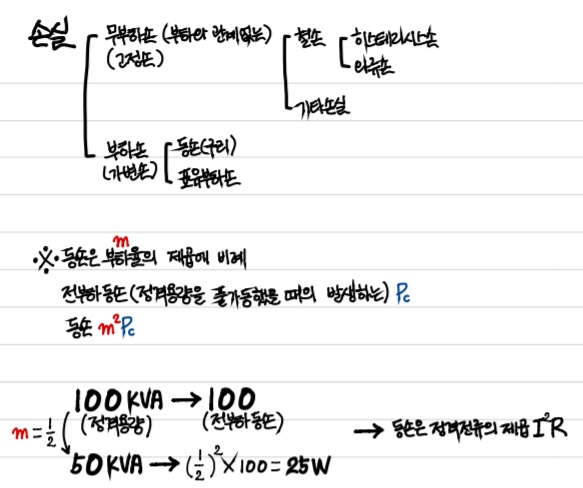 손실
무부하손 (부하와 관계없는)
(고정손)
철손
히스테리시스손
와류손
기타손실
부하손
(가변손)
동손(구리)
표유부하손
※ 동손은 부하율의 제곱에 비례
m
전부하동손(정격용량을 풀가동했을 때의 발생하는) Pc
동손 m²Pc
100 KVA → 100
(정격용량) (전부하동손)
m = 1/2
50 KVA → (1/2)² × 100 = 25W
→ 동손은 정격전류의 제곱 I²R